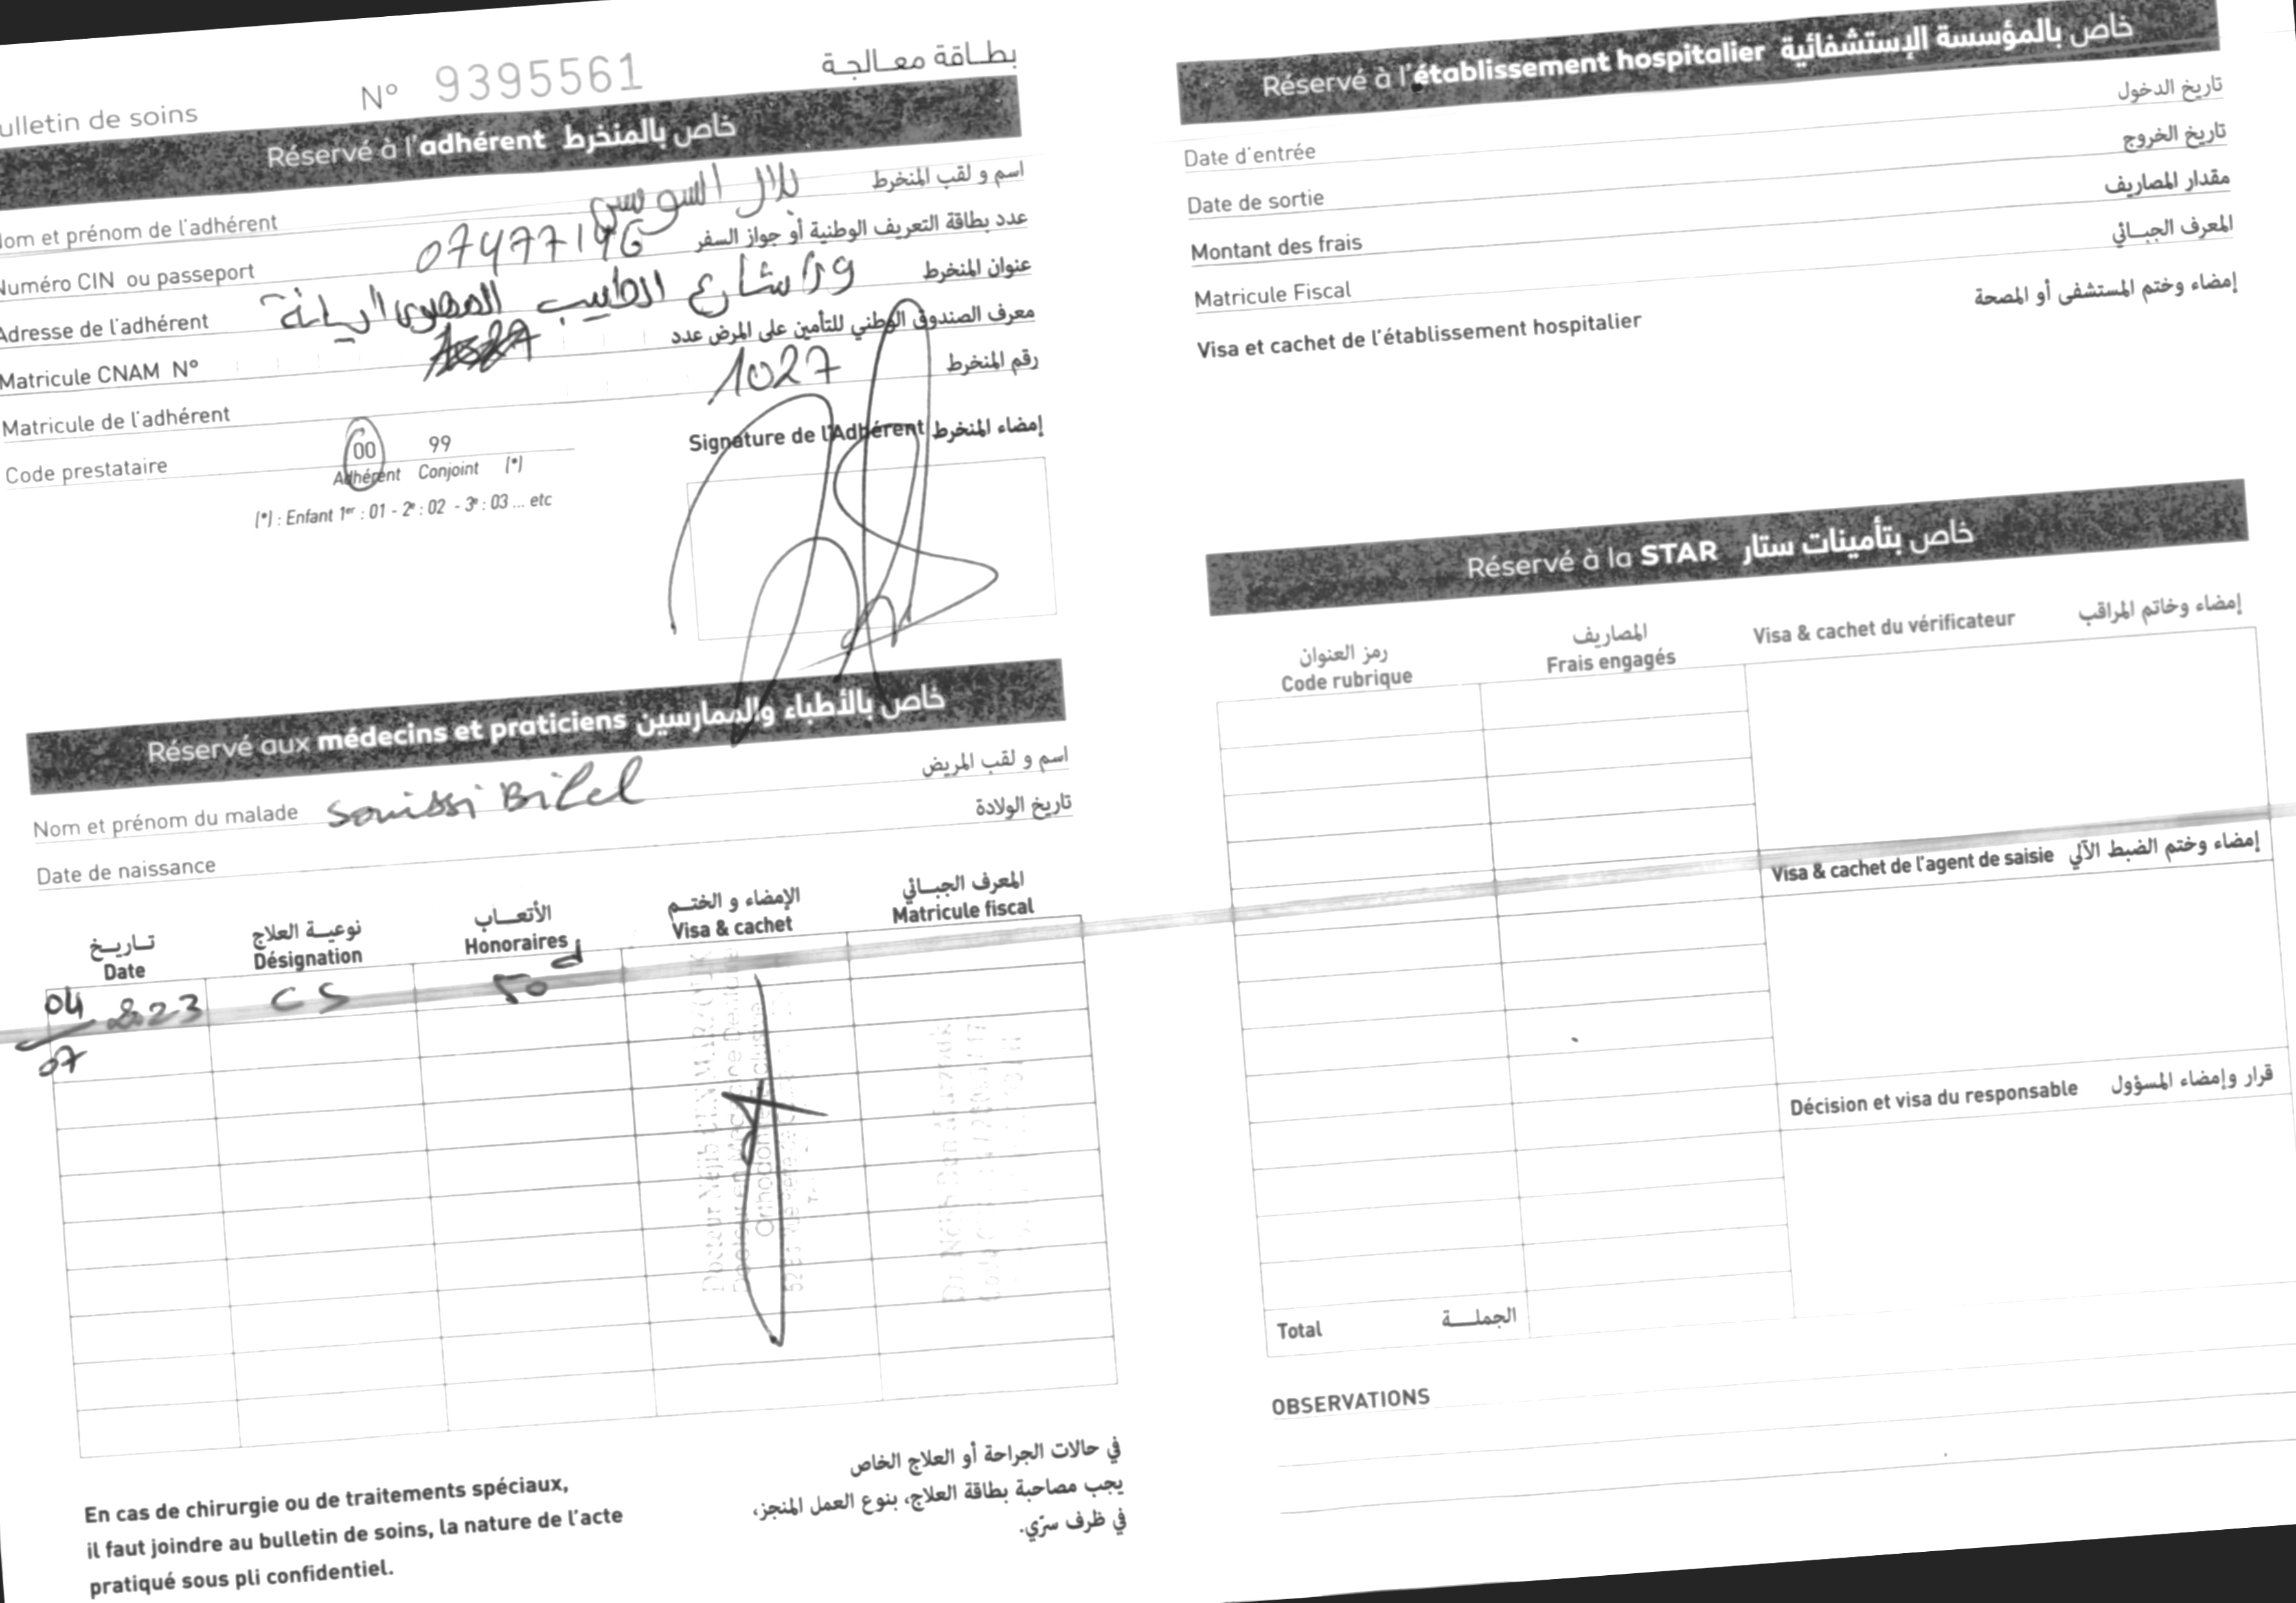 ulletin de soins N° 9395561 بطاقة معالجة
Réservé à l'adhérent خاص بالمنخرط
Nom et prénom de l'adhérent بلال السويسي اسم و لقب المنخرط
Numéro CIN ou passeport 07477196 عدد بطاقة التعريف الوطنية أو جواز السفر
Adresse de l'adhérent شارع الطيب المهيري عنوان المنخرط
Matricule CNAM N° معرف الصندوق الوطني للتأمين على المرض عدد
Matricule de l'adhérent 1027 رقم المنخرط
Code prestataire 00 99
Adhérent Conjoint (*)
(*) : Enfant 1er : 01 - 2e : 02 - 3e : 03 ... etc
Signature de l'Adhérent إمضاء المنخرط
Réservé aux médecins et praticiens خاص بالأطباء والممارسين
Nom et prénom du malade Souissi Bilel اسم و لقب المريض
Date de naissance تاريخ الولادة
تاريخ نوعية العلاج الأتعاب الإمضاء و الختم المعرف الجبائي
Date Désignation Honoraires Visa & cachet Matricule fiscal
04/07 2023 CS 50d
Docteur Néjib BEN MARZOUK
En cas de chirurgie ou de traitements spéciaux,
il faut joindre au bulletin de soins, la nature de l'acte
pratiqué sous pli confidentiel.
في حالات الجراحة أو العلاج الخاص
يجب مصاحبة بطاقة العلاج، بنوع العمل المنجز،
في ظرف سرّي.
Réservé à l'établissement hospitalier خاص بالمؤسسة الإستشفائية
Date d'entrée تاريخ الدخول
Date de sortie تاريخ الخروج
Montant des frais مقدار المصاريف
Matricule Fiscal المعرف الجبائي
Visa et cachet de l'établissement hospitalier إمضاء وختم المستشفى أو المصحة
Réservé à la STAR خاص بتأمينات ستار
رمز العنوان المصاريف
Code rubrique Frais engagés Visa & cachet du vérificateur إمضاء وخاتم المراقب
Visa & cachet de l'agent de saisie إمضاء وختم الضبط الآلي
Décision et visa du responsable قرار وإمضاء المسؤول
Total الجملة
OBSERVATIONS